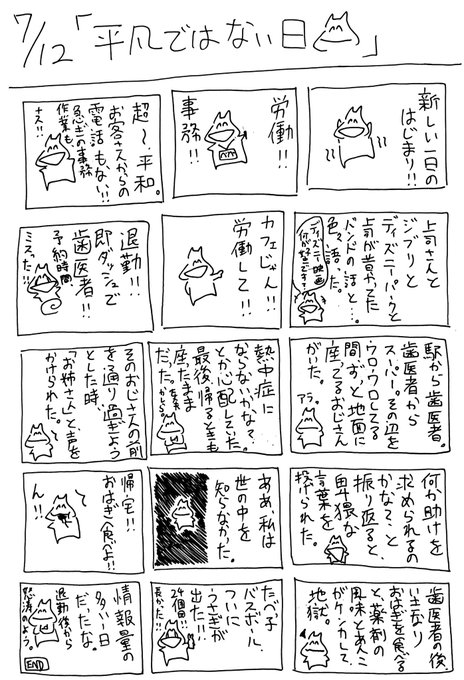 7/12「平凡ではない日」
新しい一日の
はじまり!!
労働!!
事務!!
超〜平和。
お客さんからの
電話もない!!
急ぎの事務
作業も、
ナス!!
上司さんと
ジブリと
ディズニーパークと
上司が昔やってた
バンドの話と…
色々話した。
ディズニー映画
何が好きですか?
カフェじゃん!!
労働して!!
退勤!!
即ダッシュで
歯医者!!
予約時間
ミスった!!
駅から歯医者。
歯医者から
スーパー。その辺を
ウロウロしてる
間、ずっと地面に
座ってるおじさん
がいた。
アラ。
熱中症に
ならないかな?
とか心配していた。
最後帰るときも
座ったまま
だった。
そのおじさんの前
を通り過ぎよう
とした時、
「お姉さん」と声を
かけられた。
何か助けを
求められるの
かな?と
振り返ると、
卑猥な
言葉を
投げられた。
ああ、私は
世の中を
知らなかった。
帰宅!!
おはぎ食べよ!!
ん!!
歯医者の後、
いきなり
おはぎを食べる
と、薬剤の
風味とあんこ
がケンカして
地獄。
たべ子
バスボール
ついに
うさぎが
出た!!
24個目!!
長かった!!
情報量の
多い日
だったな。
退勤後から
怒涛のよう。
END